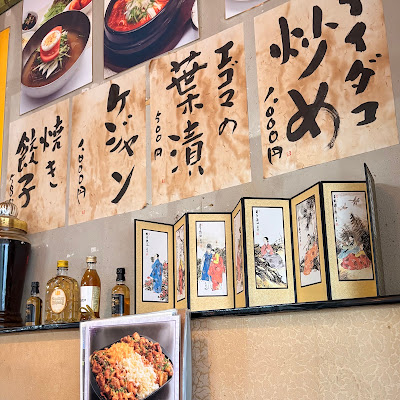 イダコ
炒め
1,000円
エゴマの
葉漬
500円
ケジャン
1,000円
焼き
餃子